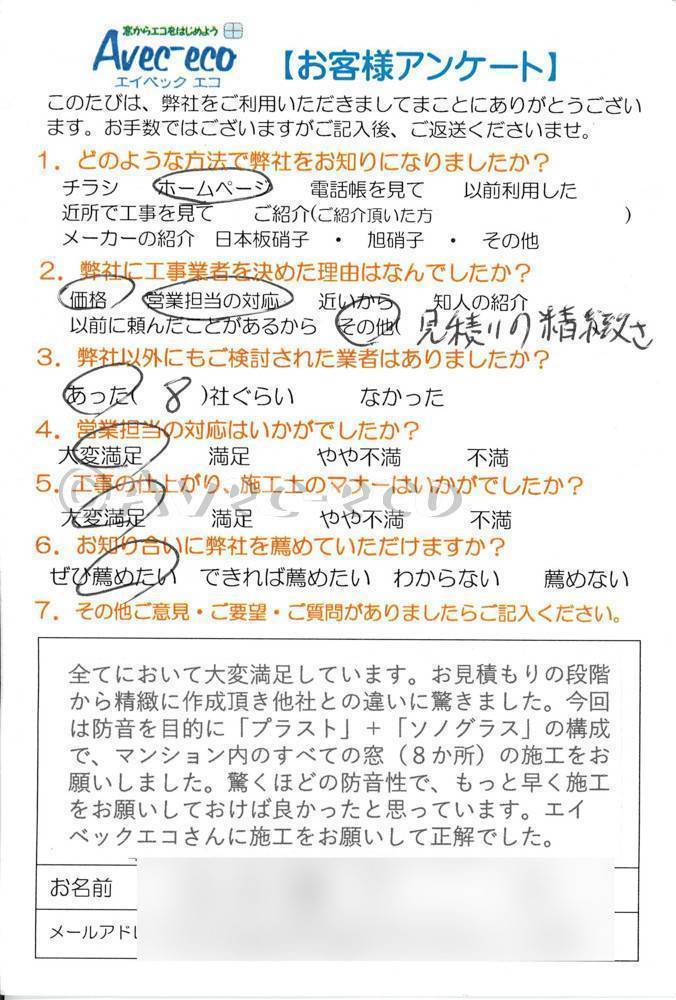 窓からエコをはじめよう
Avec-eco
エイベック エコ
【お客様アンケート】
このたびは、弊社をご利用いただきましてまことにありがとうござい
ます。お手数ではございますがご記入後、ご返送くださいませ。
1. どのような方法で弊社をお知りになりましたか？
チラシ　ホームページ　電話帳を見て　以前利用した
近所で工事を見て　ご紹介(ご紹介頂いた方　)
メーカーの紹介　日本板硝子　・　旭硝子　・　その他
2. 弊社に工事業者を決めた理由はなんでしたか？
価格　営業担当の対応　近いから　知人の紹介
以前に頼んだことがあるから　その他(　見積りの精緻さ
3. 弊社以外にもご検討された業者はありましたか？
あった(　8　)社ぐらい　なかった
4. 営業担当の対応はいかがでしたか？
大変満足　満足　やや不満　不満
5. 工事の仕上がり、施工士のマナーはいかがでしたか？
©Avec-eco
大変満足　満足　やや不満　不満
6. お知り合いに弊社を薦めていただけますか？
ぜひ薦めたい　できれば薦めたい　わからない　薦めない
7. その他ご意見・ご要望・ご質問がありましたらご記入ください。
全てにおいて大変満足しています。お見積もりの段階
から精緻に作成頂き他社との違いに驚きました。今回
は防音を目的に「プラスト」＋「ソノグラス」の構成
で、マンション内のすべての窓（８か所）の施工をお
願いしました。驚くほどの防音性で、もっと早く施工
をお願いしておけば良かったと思っています。エイ
ベックエコさんに施工をお願いして正解でした。
お名前
メールアドレ